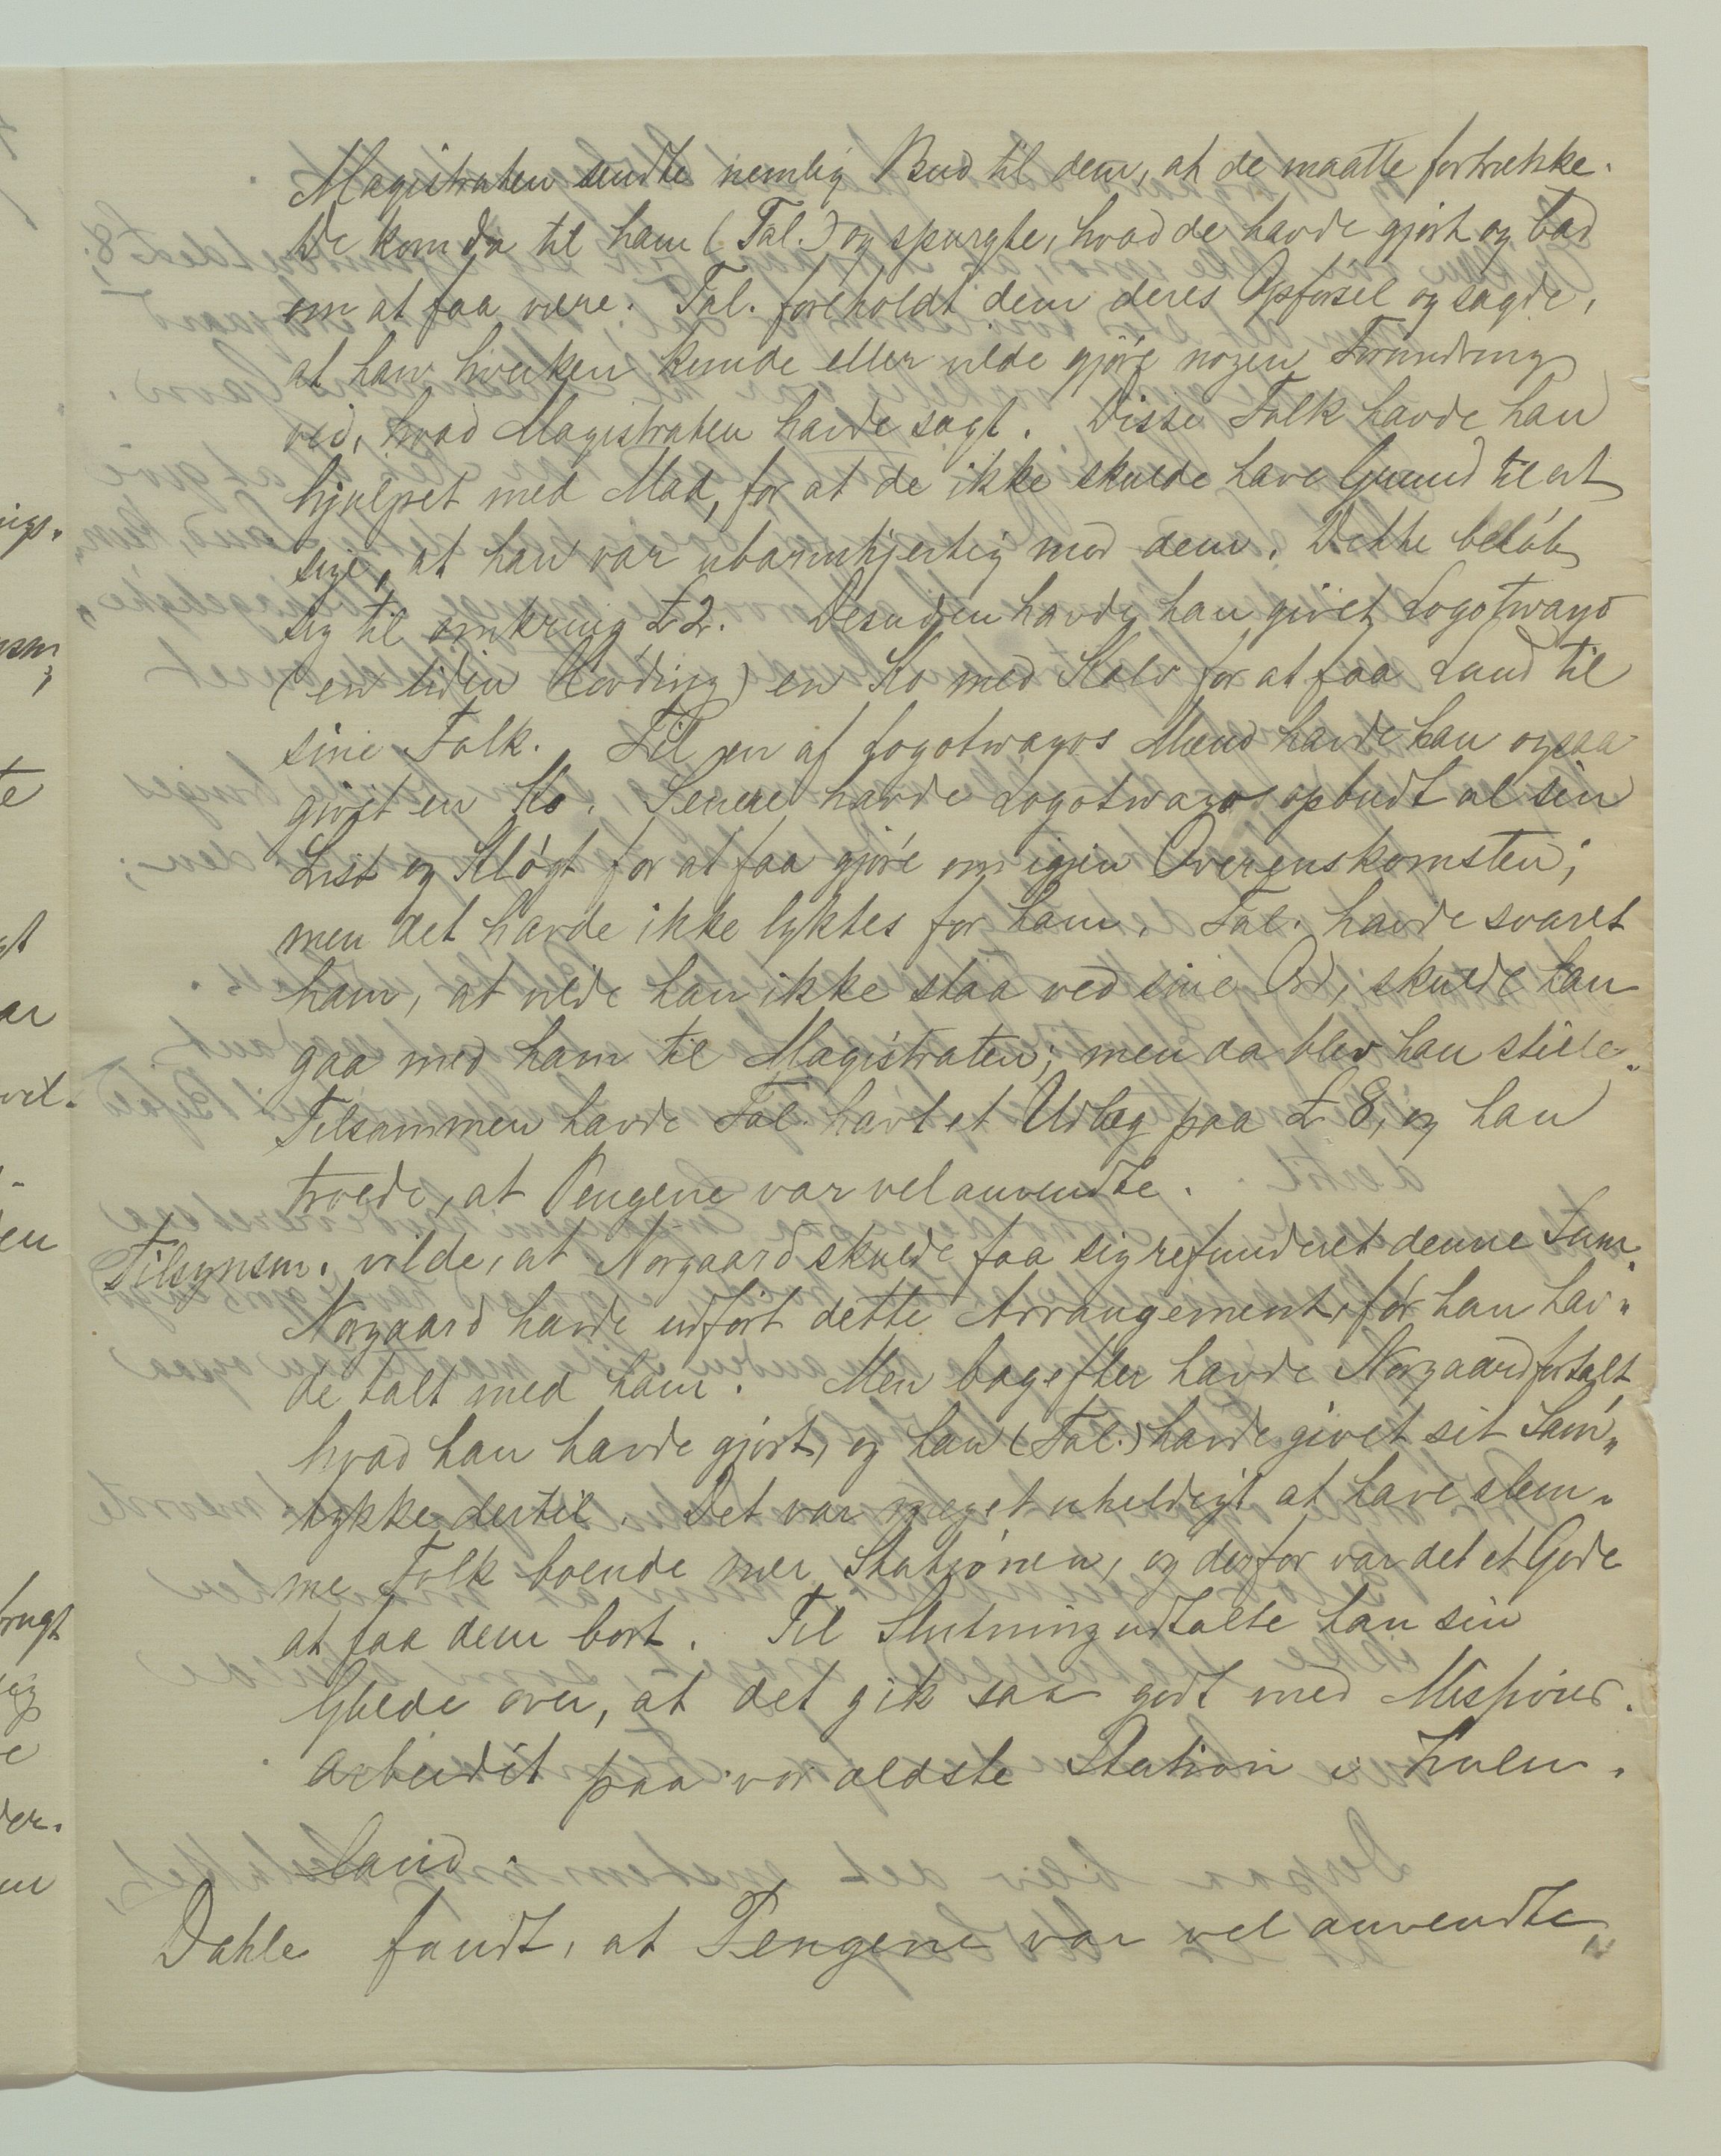 Magistraten sendte nemlig Bud til dem, at de maatte fortrække.
De kom da til ham (Tal.) og spurgte, hvad de havde gjort og bad
om at faa være. Tal. foreholdt dem deres Opførsel og sagde,
at han hverken kunde eller vilde gjøre nogen Forandring
ved, hvad Magistraten havde sagt. Disse Folk havde han
hjulpet med Mad, for at de ikke skulde have Grund til at
sige, at han var ubarmhjertig mod dem. Dette beløb
sig til omkring £2. Desuden havde han givet Logotwayo
(en liden Høvding) en Ko med Kalv for at faa Land til
sine Folk. Til en af Logotwayos Mænd havde han ogsaa
givet en Ko. Senere havde Logotwayo opbudt al sin
List og Kløgt for at faa gjøre om igjen Overenskomsten;
men det havde ikke lyktes for ham. Tal. havde svaret
ham, at vilde han ikke staa ved sine Ord, skulde han
gaa med ham til Magistraten; men da blev han stille.
Tilsammen havde Tal. havt et Udlæg paa £8, og han
troede, at Pengene var vel anvendte.
Tilsynsm. vilde, at Norgaard skulde faa sig refunderet denne Sum.
Norgaard havde udført dette Arrangement, før han hav„
de talt med ham. Men bagefter havde Norgaard fortalt
hvad han havde gjort, og han (Tal.) havde givet sit Sam„
tykke dertil. Det var meget uheldigt at have slem„
me Folk boende nær Stationen, og derfor var det et Gode
at faa dem bort. Til Slutning udtalte han sin
Glæde over, at det gik saa godt med Missions.
arbeidet paa vor ældste Station i Zulu.
land.
Dahle fandt, at Pengene var vel anvendte„
nigs.
te
gt
ar
vel.
en
brugt
sig
e
der.